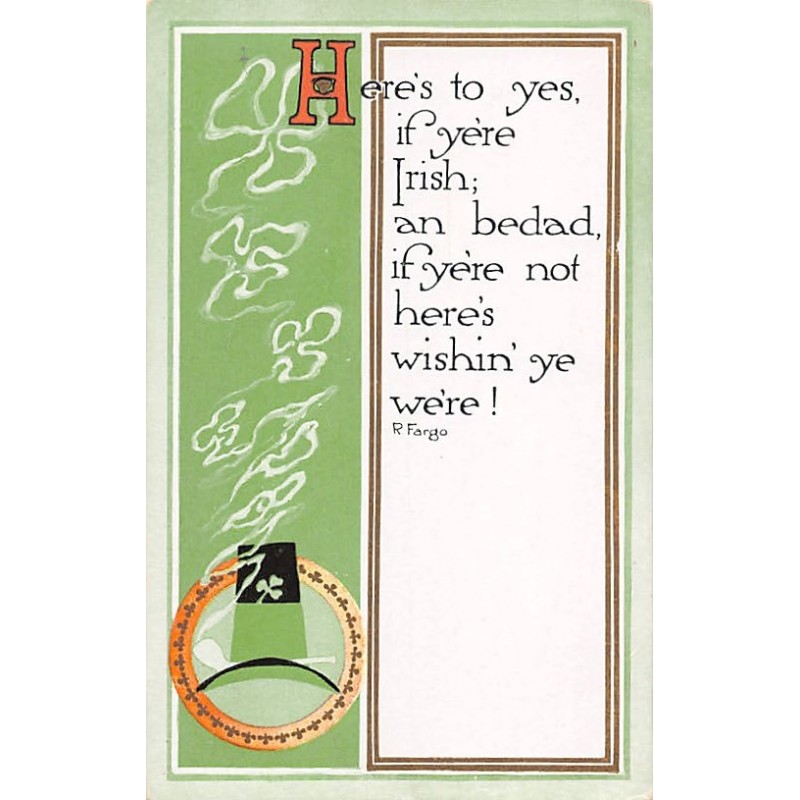 Here's to yes,
if ye're
Irish;
an bedad,
if ye're not
here's
wishin' ye
we're!
R Fargo